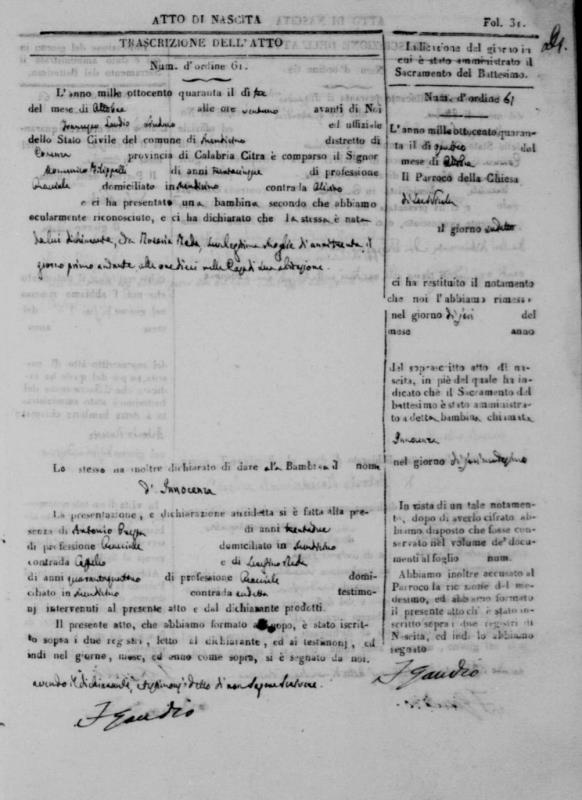 ATTO DI NASCITA
Fol. 31.
TRASCRIZIONE DELL'ATTO
Num. d'ordine 61.
L'anno mille ottocento quaranta il dì tre
del mese di Ottobre alle ore avanti di Noi
Francesco Gaudio Sindaco ed uffiziale
dello Stato Civile del comune di distretto di
Cosenza provincia di Calabria Citra è comparso il Signor
Domenico Filippelli di anni trentacinque di professione
domiciliato in contrada
e ci ha presentato una bambina secondo che abbiamo
ocularmente riconosciuto, e ci ha dichiarato che la stessa è nata
da lui dichiarante, da Rosaria sua legittima moglie di anni trenta il
giorno primo andante alle ore dieci nella Casa di sua abitazione.
Lo stesso ha inoltre dichiarato di dare alla Bambina il nome
d' Innocenza
La presentazione, e dichiarazione anzidetta si è fatta alla pre-
senza di Antonio di anni trentadue
di professione domiciliato in
contrada e di
di anni quarantaquattro di professione domi-
ciliato in contrada testimo-
nj intervenuti al presente atto e dal dichiarante prodotti.
Il presente atto, che abbiamo formato all'uopo, è stato iscrit-
to sopra i due registri, letto al dichiarante, ed ai testimonj, ed
indi nel giorno, mese, ed anno come sopra, si è segnato da noi.
avendo il dichiarante, e testimonj detto di non sapere scrivere.
F Gaudio
Indicazione del giorno in
cui è stato amministrato il
Sacramento del Battesimo.
Num. d'ordine 61
L'anno mille ottocento quaran-
ta il dì del
mese di Ottobre
Il Parroco della Chiesa
di
il giorno
ci ha restituito il notamento
che noi l'abbiamo rimesso
nel giorno del
mese anno
del soprascritto atto di na-
scita, in piè del quale ha in-
dicato che il Sacramento del
battesimo è stato amministra-
to a detta bambina chiamata
Innocenza
nel giorno
In vista di un tale notamen-
to, dopo di averlo cifrato ab-
biamo disposto che fosse con-
servato nel volume de' docu-
menti al foglio num.
Abbiamo inoltre accusato al
Parroco la ricezione del me-
desimo, ed abbiamo formato
il presente atto ch' è stato in-
scritto sopra i due registri di
Nascita, ed indi lo abbiamo
segnato
F Gaudio